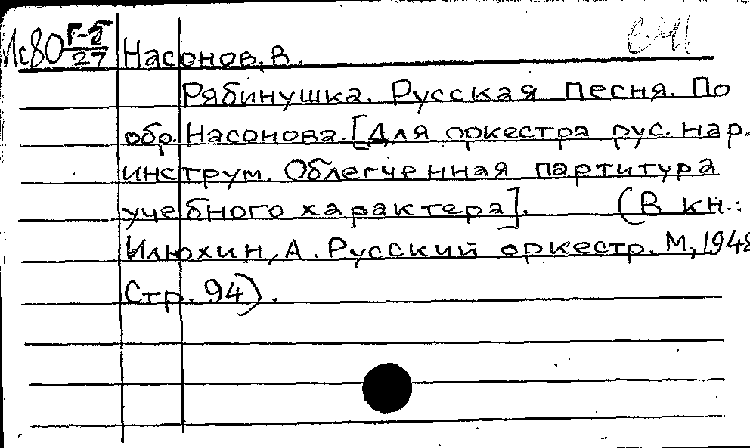 Мс80 Г-5/27 Насонов, В.
Рябинушка. Русская песня. По
обр. Насонова. [Для оркестра рус. нар.
инструм. Облегченная партитура
учебного характера]. (В кн.:
Илюхин, А. Русский оркестр. М, 1948
Стр. 94).